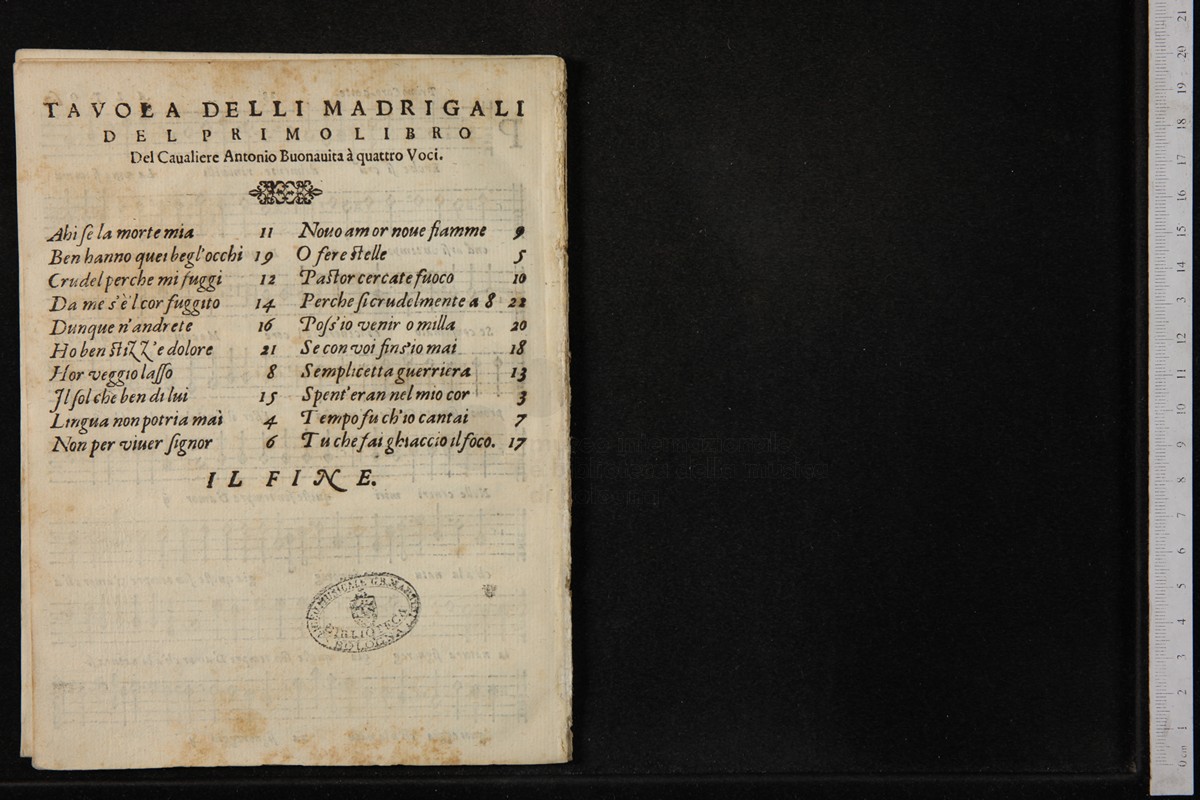 TAVOLA DELLI MADRIGALI
DEL PRIMO LIBRO
Del Caualiere Antonio Buonauita à quattro Voci.
Ahi ſe la morte mia 11
Ben hanno quei begl'occhi 19
Crudel perche mi fuggi 12
Da me s'è'l cor fuggito 14
Dunque n'andrete 16
Ho ben ſtizz'e dolore 21
Hor veggio laſſo 8
Il ſol che ben di lui 15
Lingua non potria mai 4
Non per viuer ſignor 6
Nouo amor noue fiamme 9
O fere ſtelle 5
Paſtor cercate fuoco 10
Perche ſi crudelmente a 8 22
Poſs'io venir o milla 20
Se con voi fins'io mai 18
Semplicetta guerriera 13
Spent'eran nel mio cor 3
Tempo fu ch'io cantai 7
Tu che fai ghiaccio il foco. 17
IL FINE.
MUSICALE G.B. MARTINI
BIBLIOTECA
BOLOGNA
21
20
19
18
17
16
15
14
13
12
11
10
9
8
7
6
5
4
3
2
1
0 cm